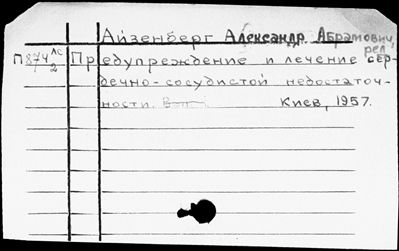 Айзенберг Александр Абрамович,
ред.
П874 лс
2
Предупреждение и лечение сер-
дечно-сосудистой недостаточ-
ности.
Киев, 1957.